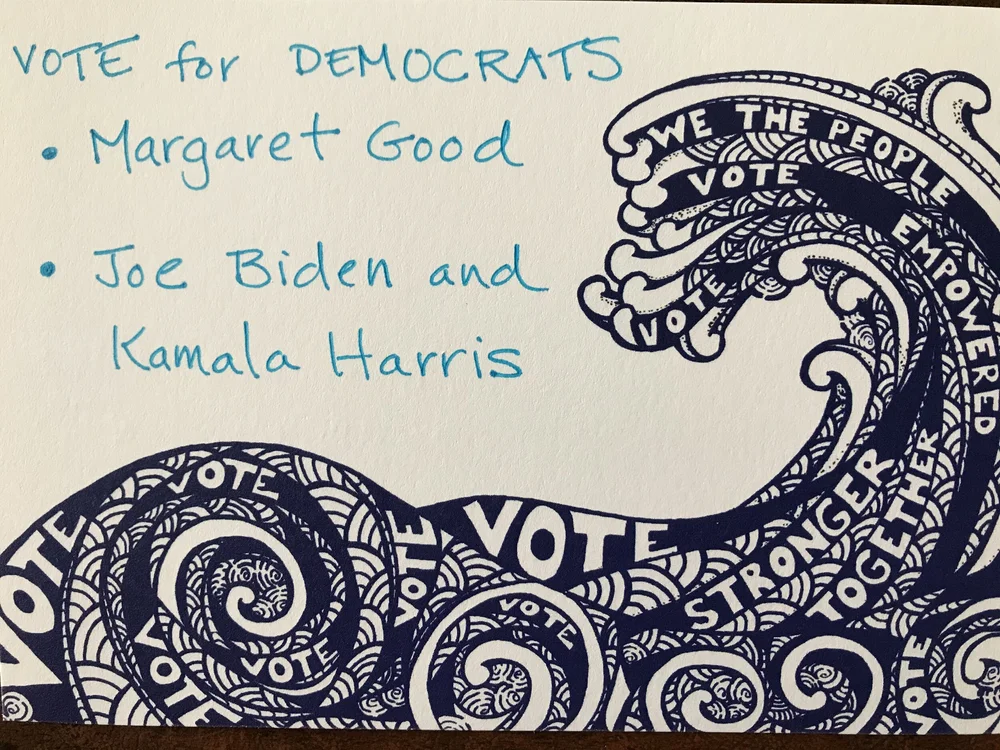 VOTE for DEMOCRATS
• Margaret Good
• Joe Biden and
Kamala Harris
WE THE PEOPLE
VOTE
EMPOWERED
VOTE
STRONGER
TOGETHER
VOTE
VOTE
VOTE
VOTE
VOTE
VOTE
VOTE
VOTE
VOTE